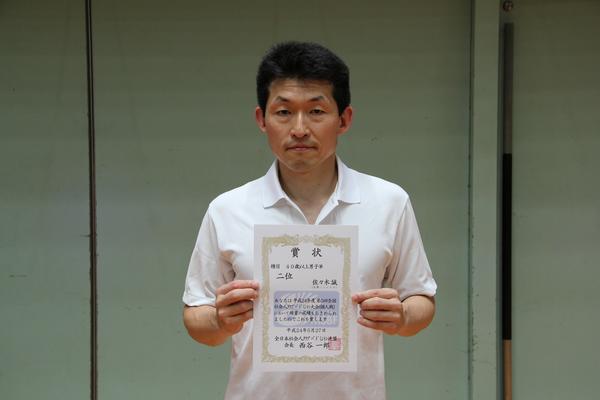 賞状
種目 40歳以上男子単
二位
佐々木誠
あなたは平成24年度第3回全国
社会人クラブバドミントン大会(個人戦)
において頭書の成績をおさめられ
ましたのでこれを賞します
平成24年5月27日
全日本社会人クラブバドミントン連盟
会長 西谷一郎